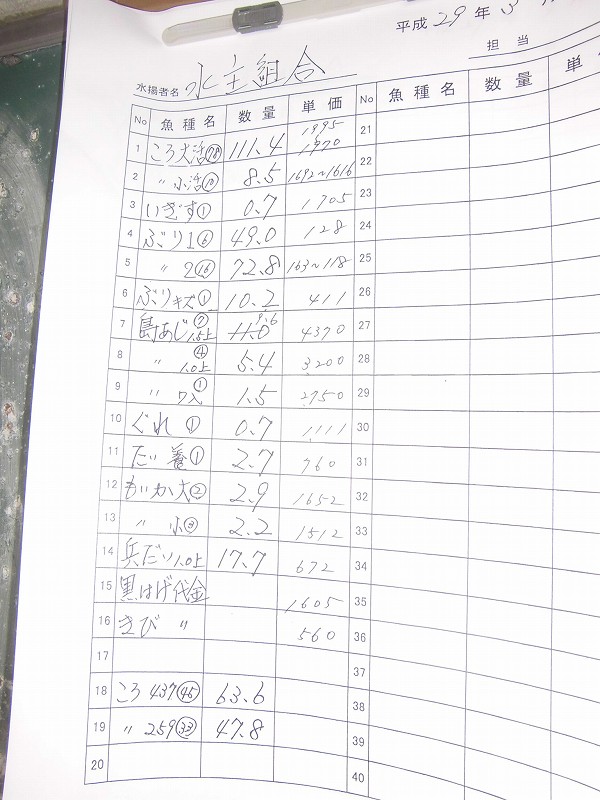 平成 29 年 3
担当
水揚者名 水主組合
No 魚種名 数量 単価 No 魚種名 数量 単
1 ころ大活(78) 111.4 1995 1970 21
2 〃 小活(10) 8.5 1692~1616 22
3 いぎす① 0.7 1705 23
4 ぶり1⑥ 49.0 128 24
5 〃 2(16) 72.8 163~118 25
6 ぶりキズ① 10.2 411 26
7 島あじ1.5上⑦ 11.0 9.6 4370 27
8 〃 1.0上④ 5.4 3200 28
9 〃 ワ入① 1.5 2750 29
10 ぐれ① 0.7 1111 30
11 だい養① 2.7 760 31
12 もいか大② 2.9 1652 32
13 〃 小③ 2.2 1512 33
14 兵だい1.0上 17.7 672 34
15 黒はげ代金 1605 35
16 きび 〃 560 36
17 37
18 ころ 437(45) 63.6 38
19 〃 259(33) 47.8 39
20 40